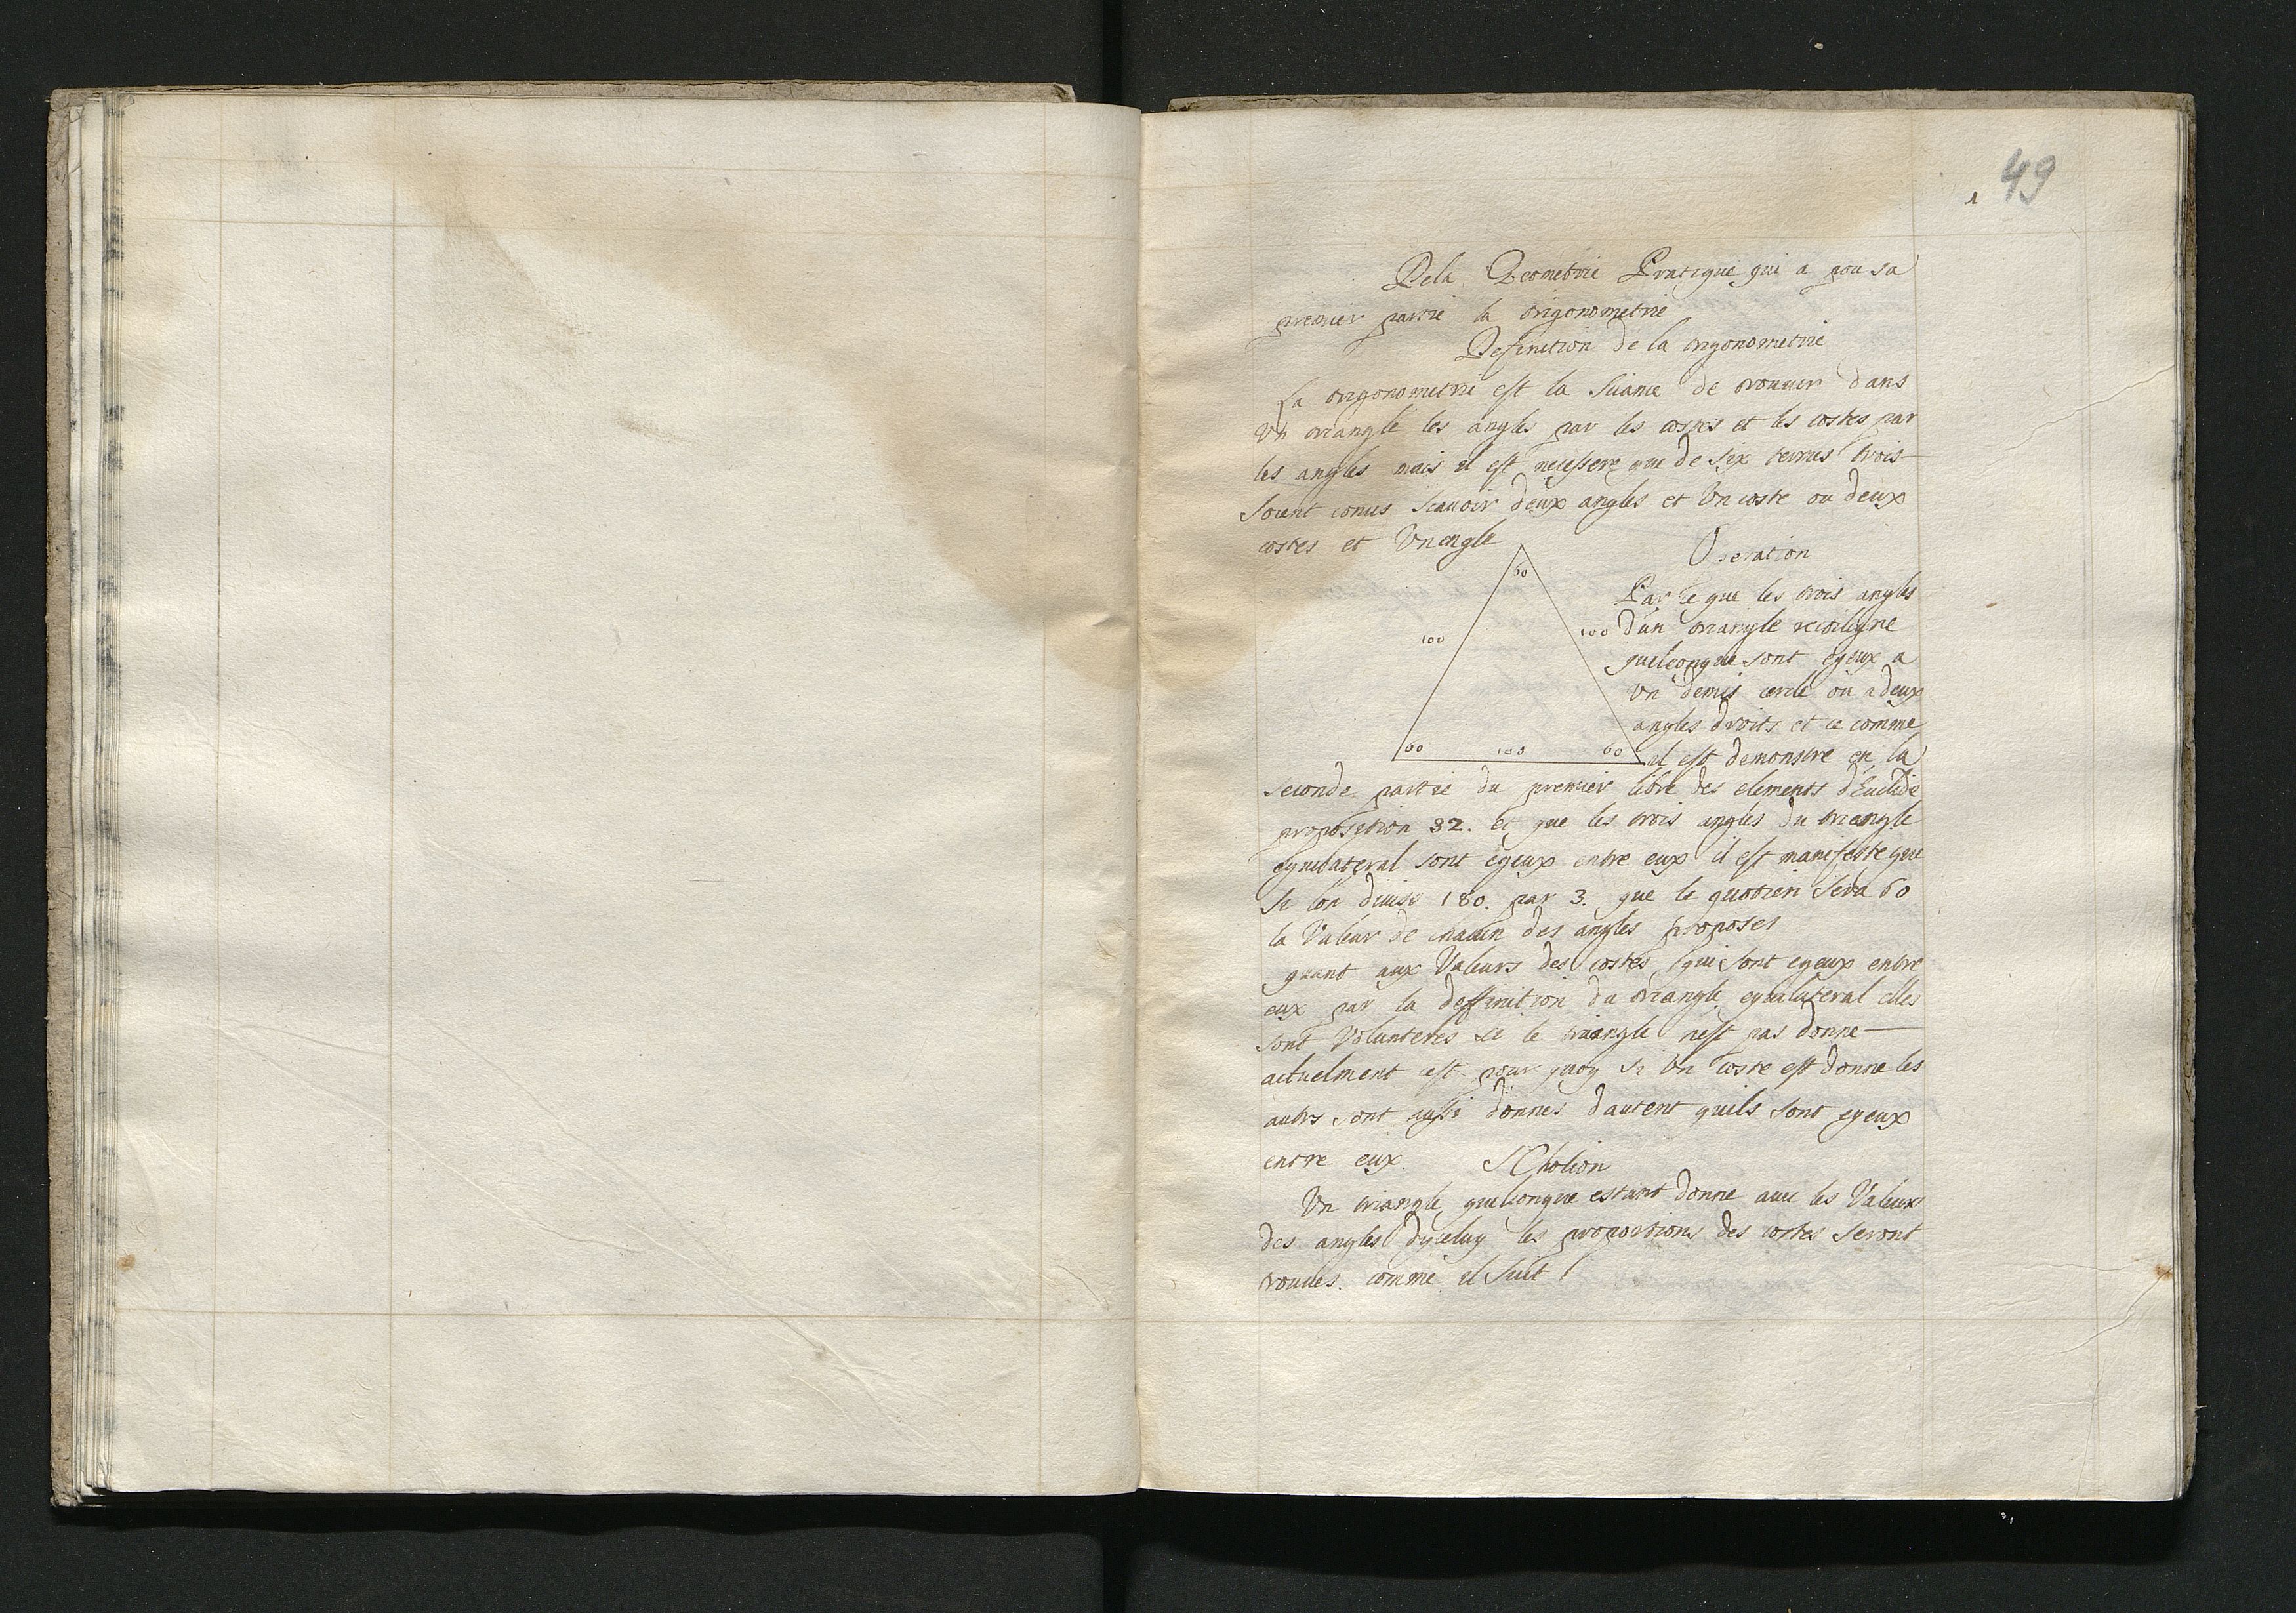 49
1
Dela Geometrie Pratique qui a pou sa
premier partie la trigonometrie
Definition de la trigonometrie
La trigonometrie est la siance de trouuer dans
Un triangle les angles par les costes et les costes par
les angles mais il est necessere que de six termes trois
soient conus scauoir deux angles et Un coste ou deux
costes et Un engle
60
100
100
60
100
60
Operation
Par ce que les trois angles
d'un triangle rectiligne
quelconque sont egeux a
Un demis cercle ou a deux
angles droits et ce comme
il est demonstre en la
seconde partie du premier libre des elements d'Euclide
proposition 32. et que les trois angles du triangle
equilateral sont egeux entre eux il est manifeste que
si lon diuise 180. par 3. que le quotien sera 60
la Valeur de chacun des angles proposes
quant aux Valeurs des costes qui sont egeux entre
eux par la deffinition du triangle equilateral elles
sont Volunteres si le triangle nest pas donne
actuelment cest pour quoy si Un coste est donne les
autrs sont aussi donnes dautent quils sont egeux
entre eux. SCholion
Un triangle quelconque estant donne auec les Valeurs
des angles dyceluy les proportions des costes seront
trouues. comme il suit